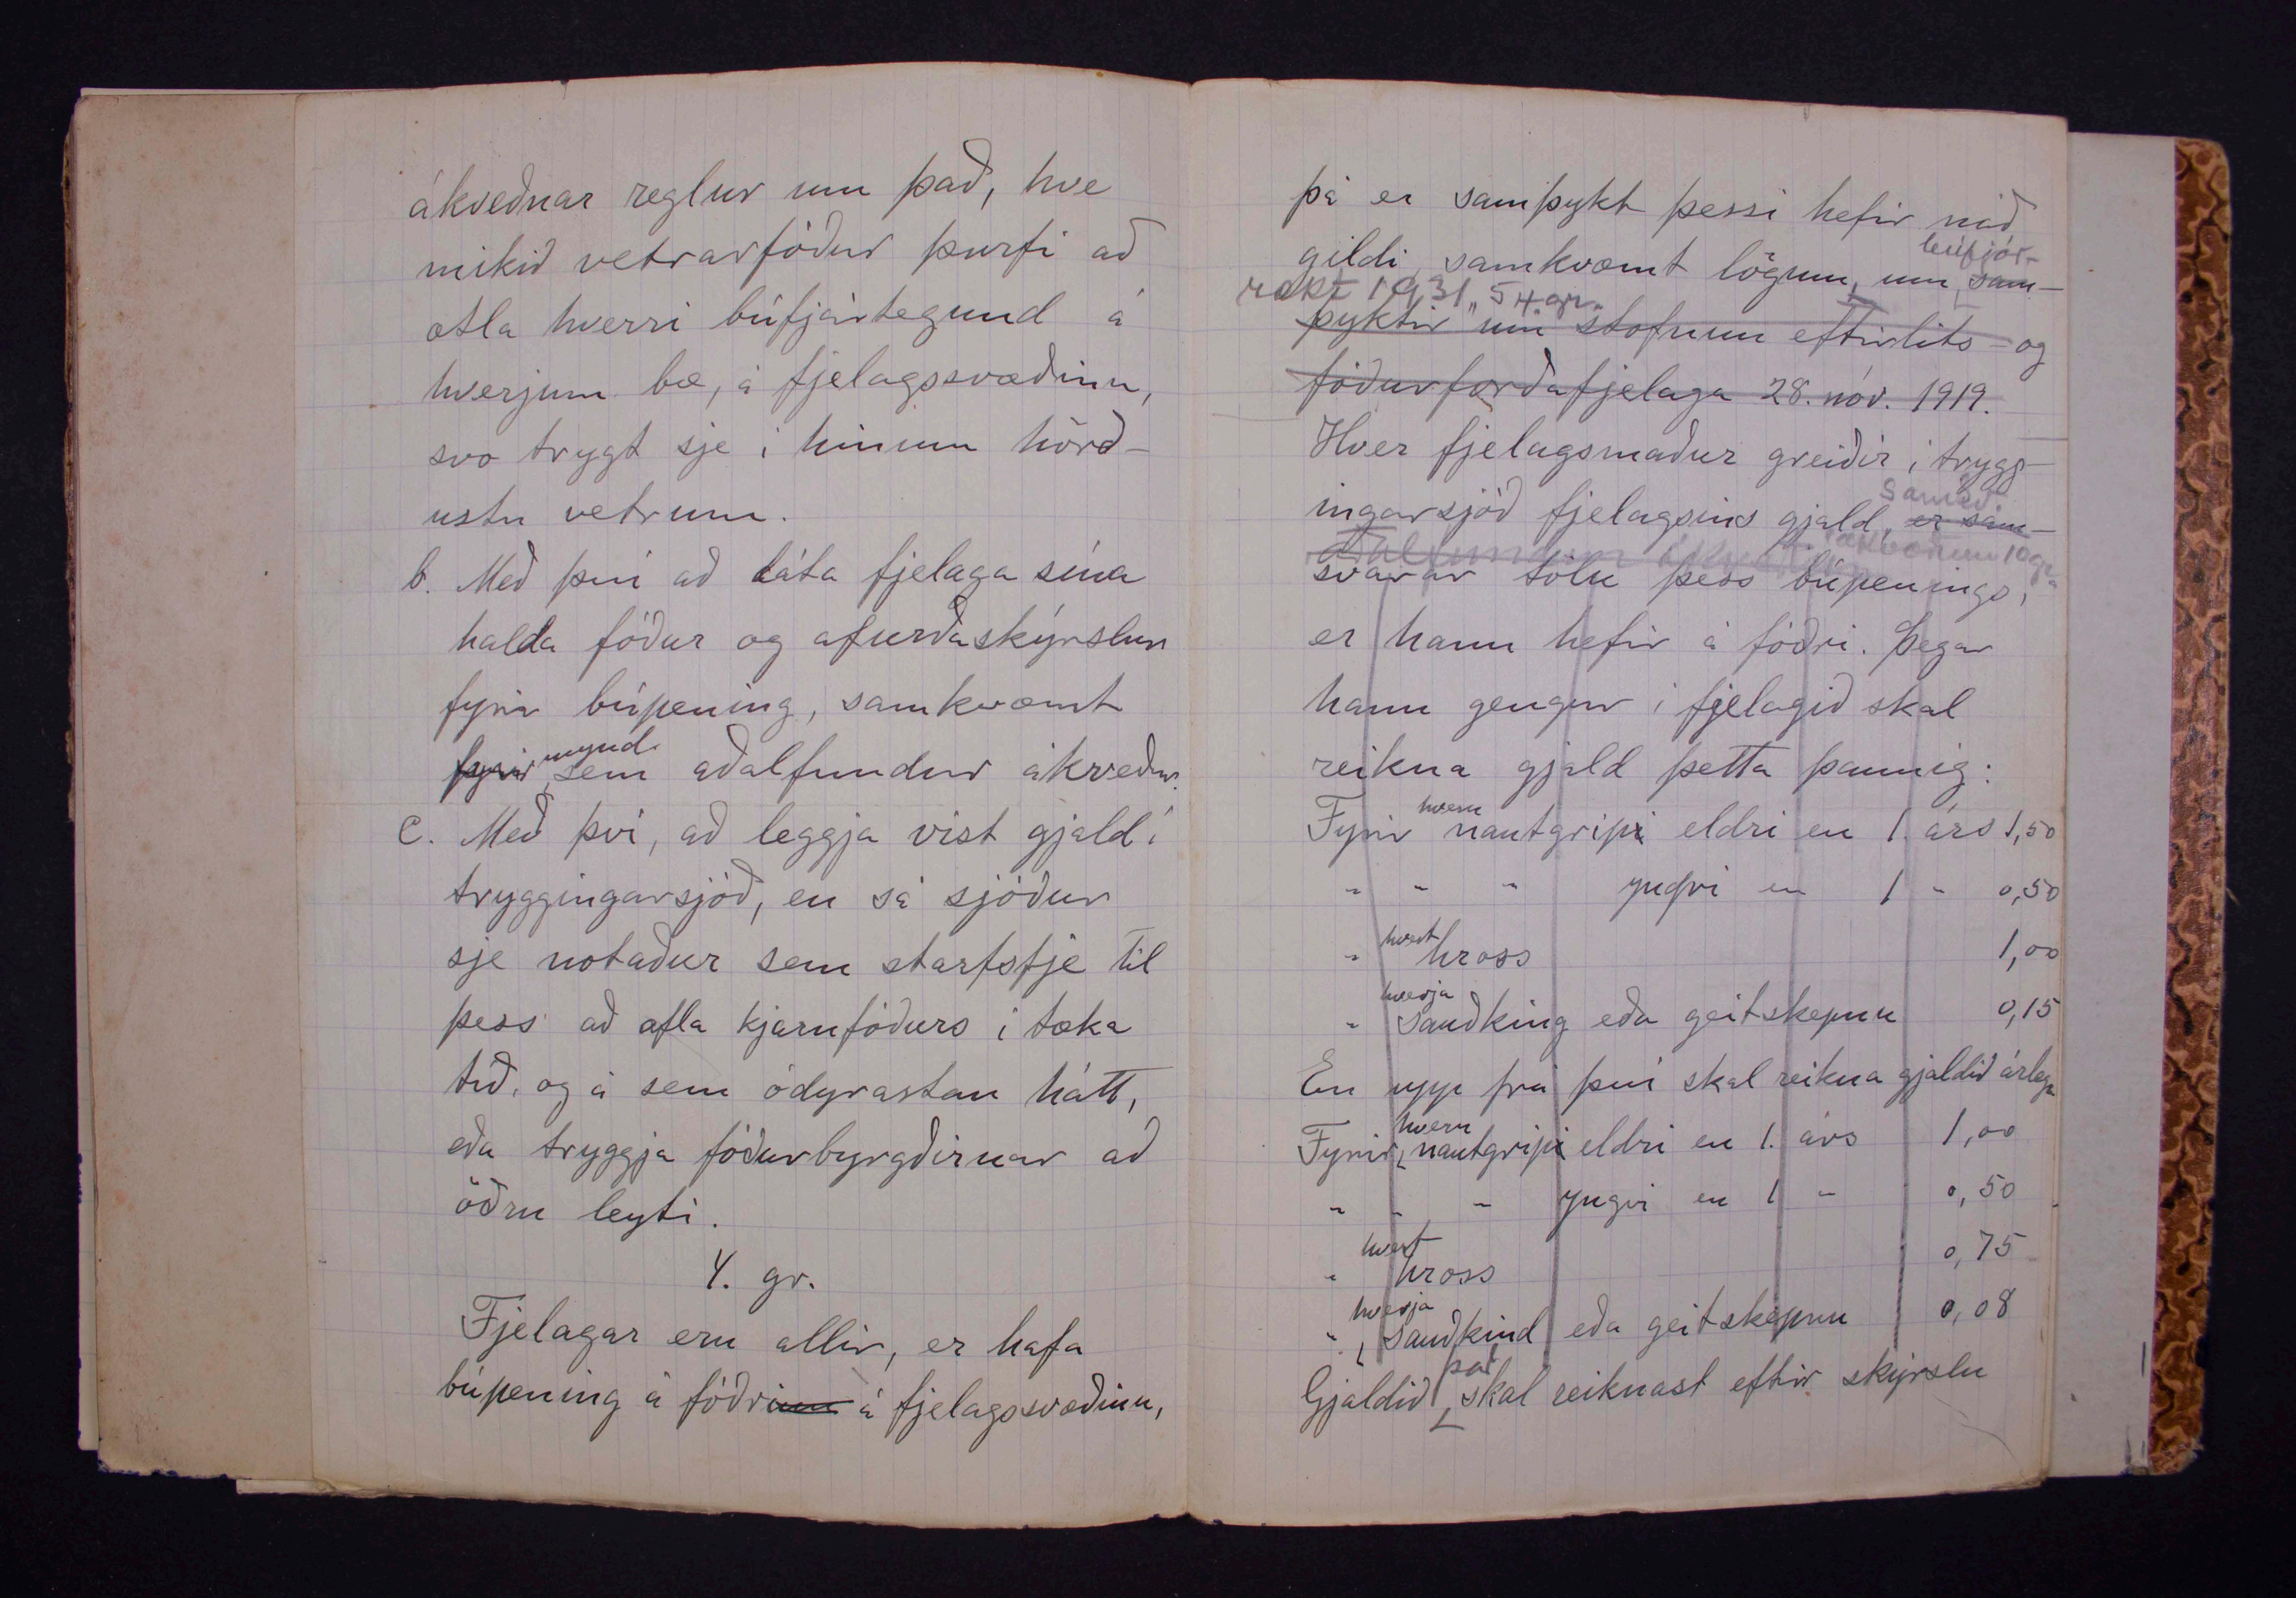 ákveðnar reglur um það, hve
mikið vetrarfóður þurfi að
ætla hverri búfjártegund á
hverjum bæ, á fjelagssvæðinu,
svo trygt sje í hinum hörð-
ustu vetrum.
b. Með því að láta fjelaga sína
halda fóður og afurðaskýrslur
fyrir búpening, samkvæmt
fyrirmynd sem aðalfundur ákveður.
c. Með því, að leggja vist gjald í
tryggingarsjóð, en sá sjóður
sje notaður sem starfsfje til
þess að afla kjarnfóðurs í tæka
tíð, og á sem ódyrastan hátt,
eða tryggja fóðurbyrgðirnar að
öðru leyti.
4. gr.
Fjelagar eru allir, er hafa
búpening á fóðrinu á fjelagssvæðinu,
þá er samþykt þessi hefir náð
búfjár-
gildi, samkvæmt lögum, um sam-
rækt 1931, 54 gr.
þyktir um stofnun eftirlits- og
fóðurforðafjelaga 28. nóv. 1919.
Hver fjelagsmaður greiðir í trygg-
ingarsjóð fjelagsins gjald, er sam-
ákvæðum 10 gr.
svarar tölu þess búpenings,
er hann hefir á fóðri. Þegar
hann gengur í fjelagið skal
reikna gjald þetta þannig:
hvern
Fyrir nautgripi eldri en 1. árs 1,50
" " " yngri en 1 " 0,50
hvert
" hross 1,00
hverja
" sauðking eða geitskepnu 0,15
En upp frá því skal reikna gjaldið árlega
hvern
Fyrir nautgripi eldri en 1. árs 1,00
" " " yngri en 1 " 0,50
hvert
" hross 0,75
hverja
" sauðkind eða geitskepnu 0,08
Gjaldið skal reiknast eftir skýrslu